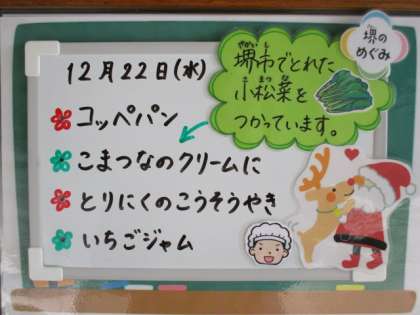 12月22日(水)
コッペパン
こまつなのクリームに
とりにくのこうそうやき
いちごジャム
堺市でとれた
小松菜を
つかっています。
堺の
めぐみ